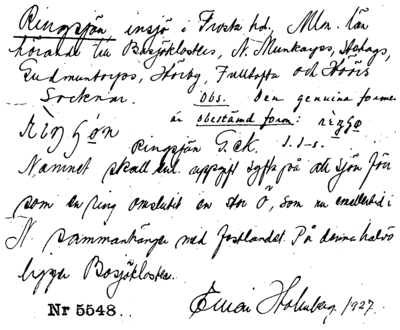 Ringsjön insjö i Frosta hd. Mlm. län
hörande till Bosjöklosters, N. Munkarps,
Gudmuntorps, Hörby, Fulltofta och Höörs
Socknar. Obs. Den genuina formen
är obestämd form:
Ringsjön G.ck. 1.1-s.
Namnet skall enl. uppgift syfta på att sjön förr
som en ring omslutit en stor Ö, som nu emellertid i
N. sammanhänger med fastlandet. På denna halvö
ligger Bosjökloster.
Nr 5548. Einar Holmberg. 1927.